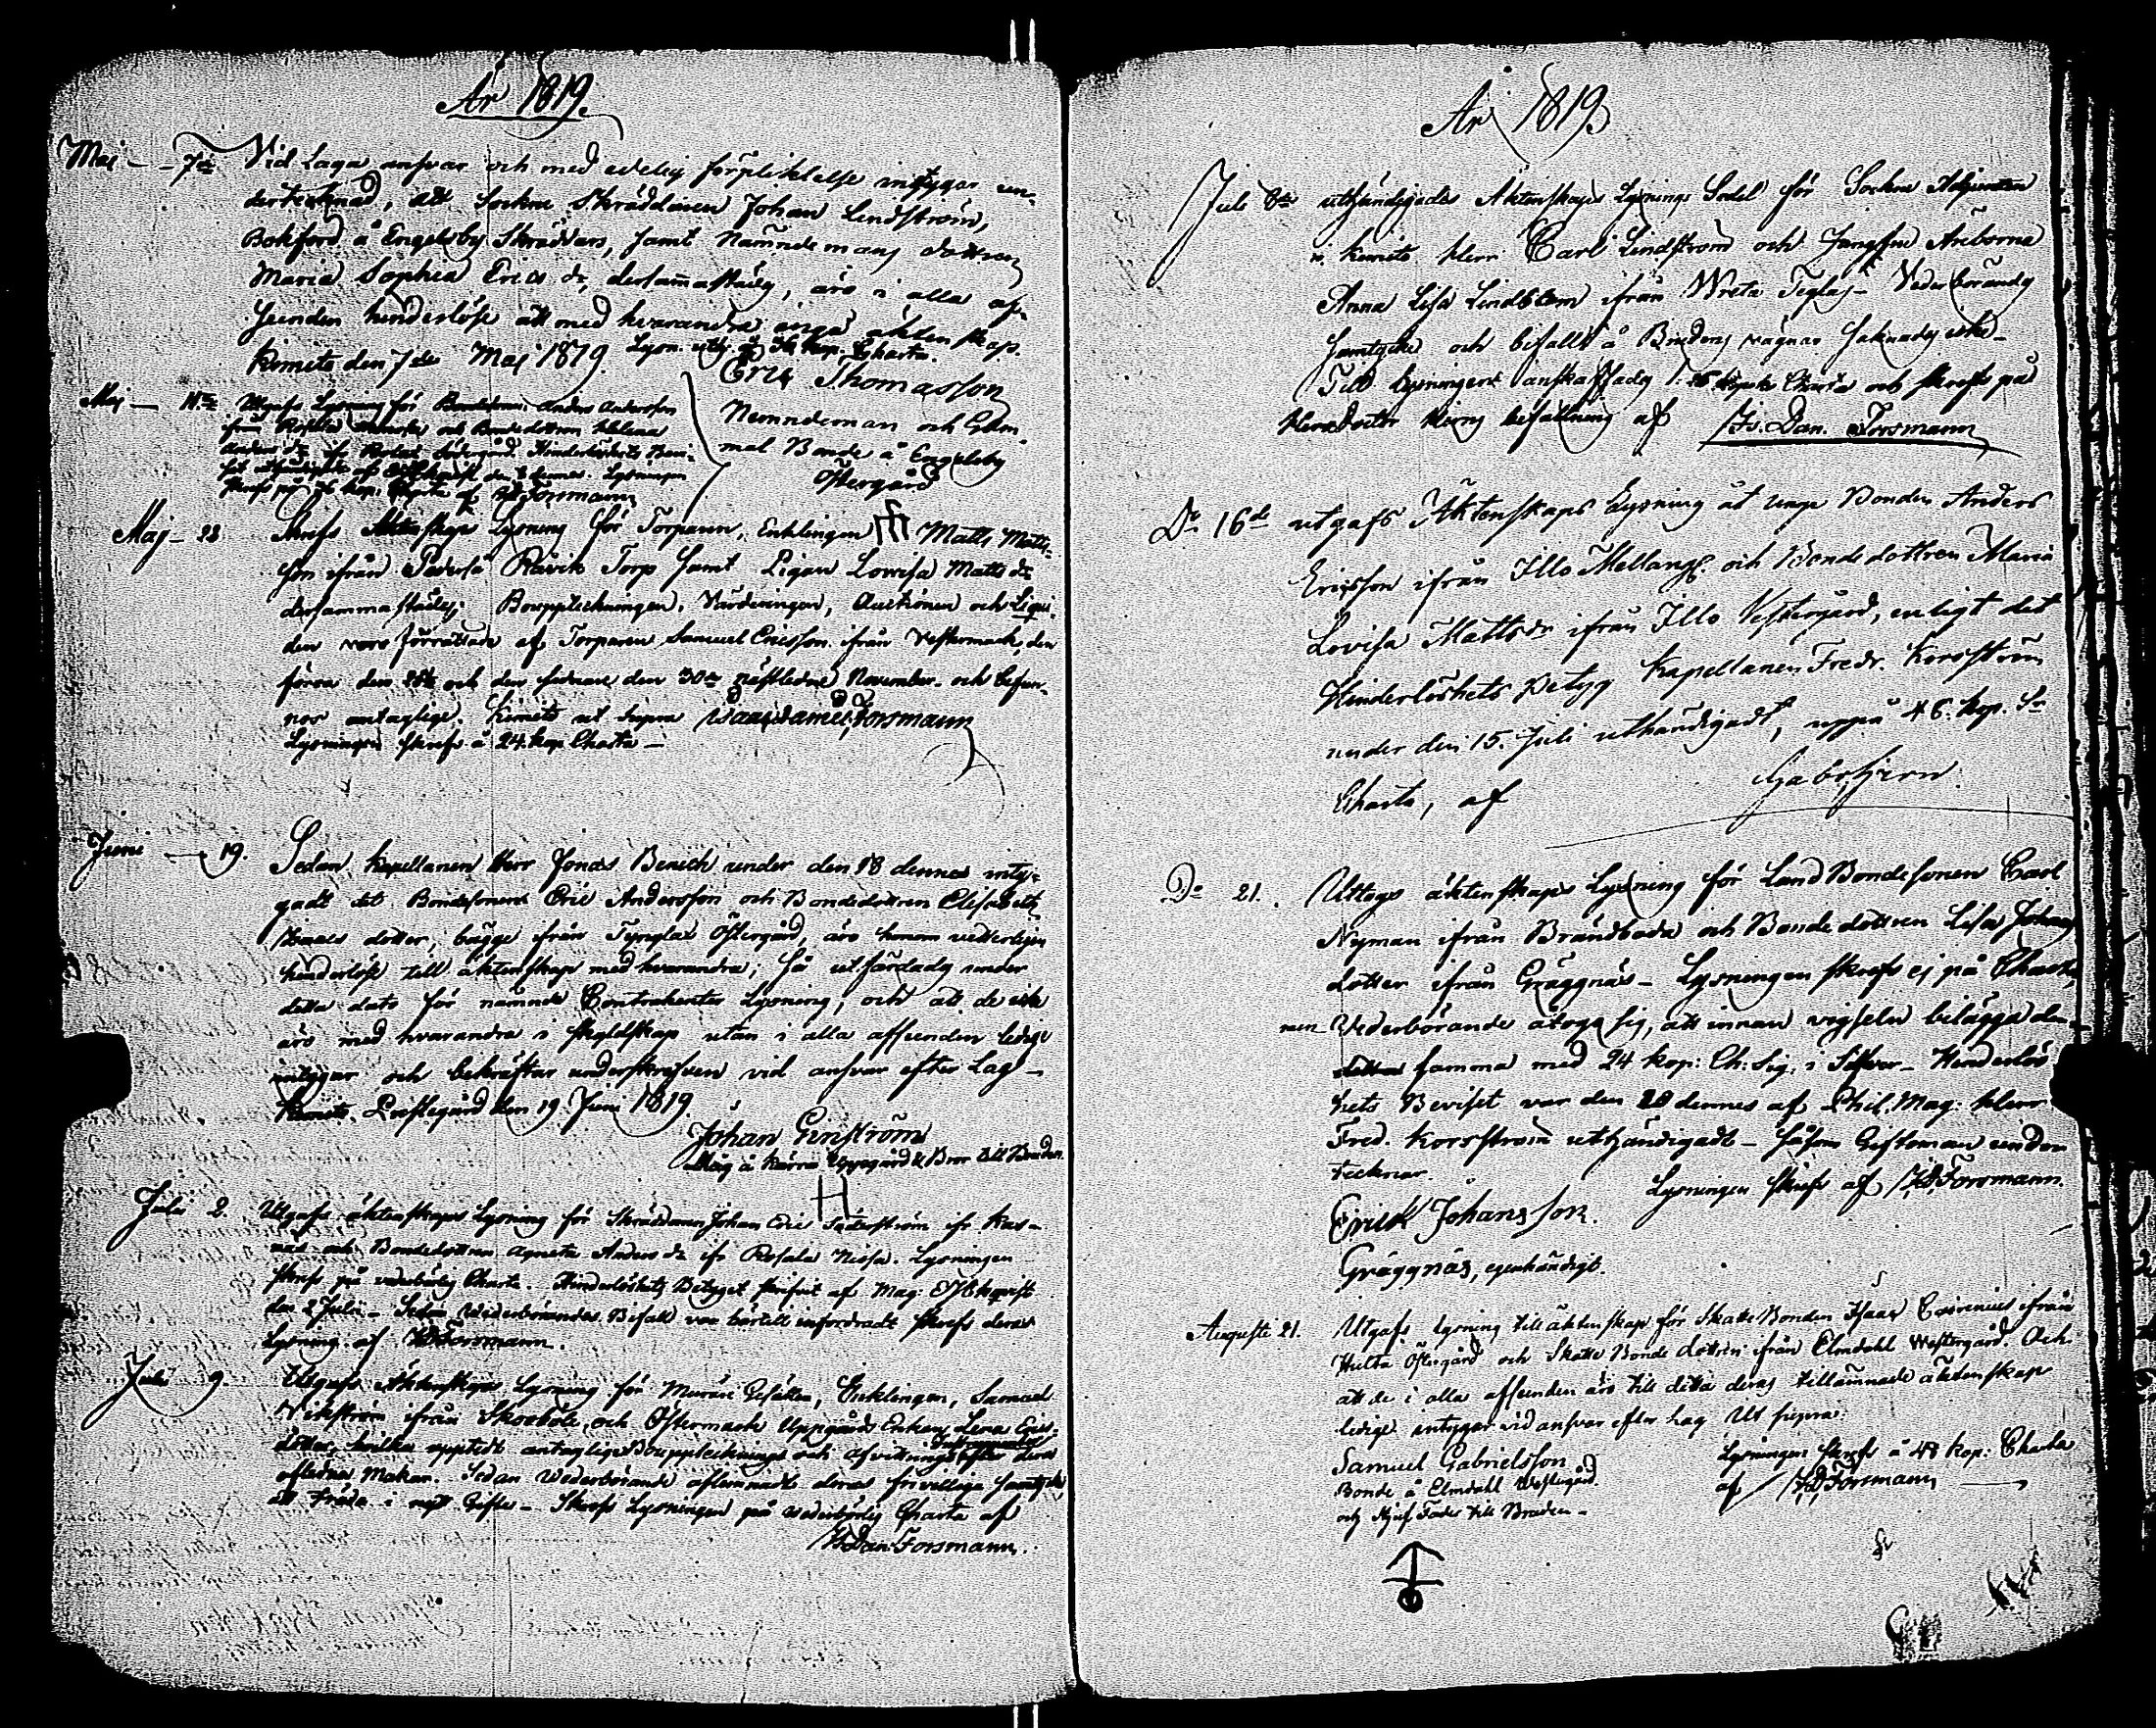 År 1819.
Maj - 7de Vid Laga answar och med edelig förpliktelse intygar un-
dertecknad, att Sockne Skräddaren Johan Lindström,
Bokförd å Engelsby Skräddars, samt Nämndemans dottren
Maria Sophia Erics dr, dersammastädes, äro i alla af-
seenden hinderlöse att med hvarandra ingå äktenskap.
Kimito den 7de Maj 1819. Lysn. utg. på kop. Charta.
Eric Thomasson
Nemndeman och Gam
mal Bonde å Engelsby
Östergård
Maj - Utgafs Lysning för Anders Andersson
och Bondedottren Helena
Anders dr ifr. Södergård. Hinderlöshets Bevi-
set den dennes. Lysningen
skrefs på kop. Charta af Forsmann
Maj - 28 Skrefs Äktenskaps Lysning för Torparen, Enklingen Matts Matts-
son ifrån Pederså Råvik Torp samt Pigan Lovisa Matts dr
dersammastädes; Bouppteckningen, Värderingen, Auctionen och Liqui-
den voro förrättade af Torparen Samuel Ericsson ifrån Vestermark, den
förra den och den sednare den 30de nästledne November - och befun-
nos antaglige. Kimito ut supra Isaac Daniel Forsmann
Lysningen skrefs å 24. kop. Charta -
Juni - 19. Sedan Kapellanen Herr Jonas Benich under den 18 dennes inty-
gadt det Bondesonen Eric Andersson och Bondedottren Elisabeth
Isaacs dotter, bägge ifrån Tynglax Östergård, äro honom vetterligen
hinderlöse till äktenskap med hvarandra; så utfärdades under
detta dato för nämnde Contrahenter Lysning; och att de icke
äro med hvarandra i skyldskap utan i alla afseenden ledige
intygar och bekräftar underskrifven vid ansvar efter Lag -
Kimito Prestegård den 19. Juni 1819.
Johan Genström
Måg å Kärra Uppgård & Bror till Bruden.
Julii 2. Utgafs äktenskaps Lysning för Skräddaren Johan Eric Söderström ifr. Kas-
näs och Bondedottren Agneta Anders dr ifr. Rosala Nissa. Lysningen
skrefs på vederbörlig Charta. Hinderlöshets Betyget skrifvit af Mag:
den 2 Julii - Sedan Wederbörandes Bifall var härtill infordradt skrefs deras
Lysning af Forsmann.
Julii 9. Utgafs Äktenskaps Lysning för Murare Gesällen, Enklingen, Samuel
Wikström ifrån Skoböle, och Östermark Uppgårds Enkan, Lena Erics-
dotter, hvilka uppstedt antaglige Bouppteckningar och Afvittnings Instrumenter efter deras
aflidna Makar. Sedan Wederbörande aflemnadt deras frivilliga samtycke
att träda i nytt Gifte - Skrefs Lysningen på vederbörlig Charta af
Is Dan: Forsmann.
År 1819
Juli 8de uthändigades Äktenskaps Lysnings Sedel för Sockne Adjuncten
i Kimito Herr Carl Lindström och Jungfrun Äreborna
Anna Lisa Lindblom ifrån Wreta Teglas - Vederbörandes
samtycke och bifall å Brudens vägnar saknades icke -
Till Lysningen anskaffades kopeks Charta och skrefs på
Herr Doctor befallning af Is: Dan. Forsmann
Do 16de utgafs Äktenskaps Lysning åt unge Bonden Anders
Ericsson ifrån Illo Mellang. och Bondedottren Maria
Lovisa Mattsdr ifrån Illo Vestergård, enligt det
Hinderlöshets Betyg Kapellanen Fredr. Korsström
under den 15. Juli uthändigadt, uppå 46. kop. Sr
Charta, af Gab:
Do 21. Uttogs äktenskaps Lysning för LandBondesonen Carl
Nyman ifrån Brändboda och Bonde dottren Lisa Johans
dotter ifrån Gräggnäs - Lysningen skrefs ej på Charta,
men Vederbörande åtogo sig, att innan vigseln belägga den
samma med 24 kop: Ch: Sig: i Silfver - Hinderlös
hets Beviset var den 20 dennes af Phil. Mag: Herr
Fred. Korsström uthändigadt - såsom Giftoman under
tecknar. Lysningen skrefs af Is D Forsmann.
Erick Johansson.
Gräggnäs, egenhändigt.
Augusti 21. Utgafs lysning till äktenskap för Skatte Bonden Isaac ifrån
Hulta Östergård och Skatte Bonde dottren ifrån Elmdahl Westergård. Och
att de i alla afseenden äro till detta deras tillämnade äktenskap
ledige intygar vid ansvar efter Lag Ut supra:
Samuel Gabrielsson Lysningen skrefs å 48 kop: Charta
Bonde å Elmdahl Westergård. af Is D Forsmann
och Styf Fader till Bruden -